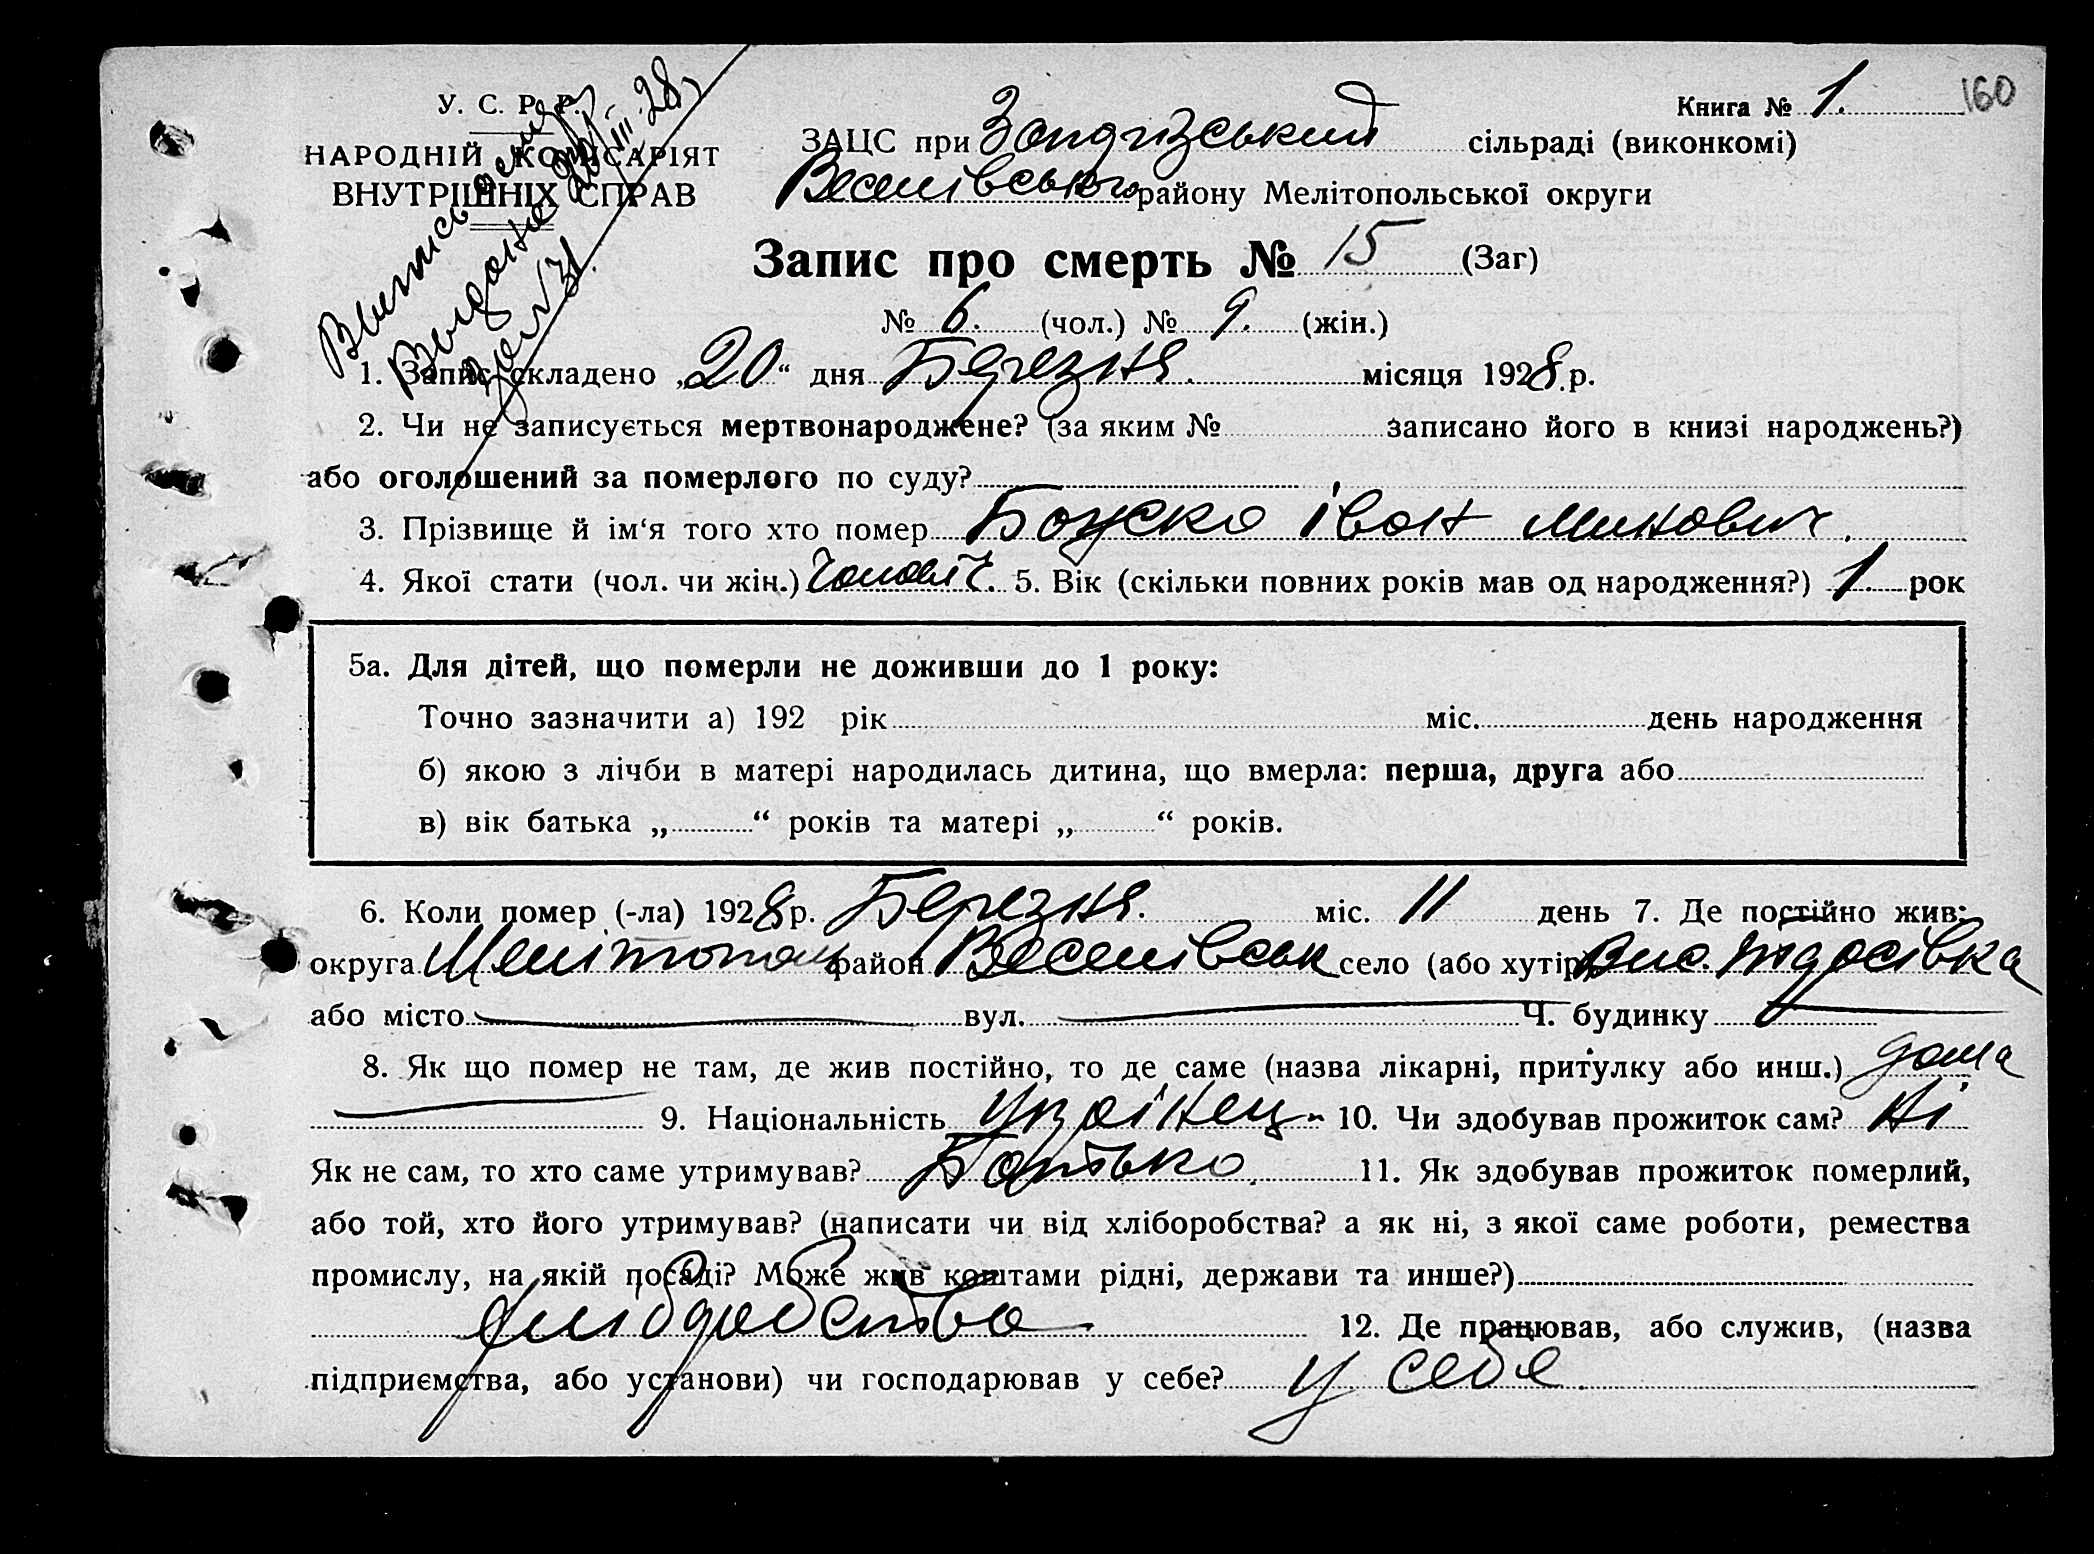 160
У. С. Р. Р.
НАРОДНІЙ КОМІСАРІЯТ
ВНУТРІШНІХ СПРАВ
Книга № 1.
ЗАЦС при сільраді (виконкомі)
Веселівського району Мелітопольської округи
Запис про смерть № 15 (Заг)
№ 6. (чол.) № 9. (жін.)
1. Запис складено „20“ дня Березня. місяця 1928.р.
2. Чи не записується мертвонароджене? (за яким № записано його в книзі народжень?)
або оголошений за померлого по суду?
3. Прізвище й ім‘я того хто помер Боуско Іван Минович.
4. Якої стати (чол. чи жін.) Чоловіч. 5. Вік (скільки повних років мав од народження?) 1. рок
5а. Для дітей, що померли не доживши до 1 року:
Точно зазначити а) 192 рік міс. день народження
б) якою з лічби в матері народилась дитина, що вмерла: перша, друга або
в) вік батька „ “ років та матері „ “ років.
6. Коли помер (-ла) 1928р. Березня. міс. 11 день 7. Де постійно жив:
округа Мелітополь район Веселівськ село (або хутір) Вис. Тодосівка
або місто вул. Ч. будинку
8. Як що помер не там, де жив постійно, то де саме (назва лікарні, притулку або инш.) дома
9. Національність Українец- 10. Чи здобував прожиток сам? Ні
Як не сам, то хто саме утримував? Батько. 11. Як здобував прожиток померлий,
або той, хто його утримував? (написати чи від хліборобства? а як ні, з якої саме роботи, ремества
промислу, на якій посаді? Може жив коштами рідні, держави та инше?)
хліборобство 12. Де працював, або служив, (назва
підприємства, або установи) чи господарював у себе? у себе.